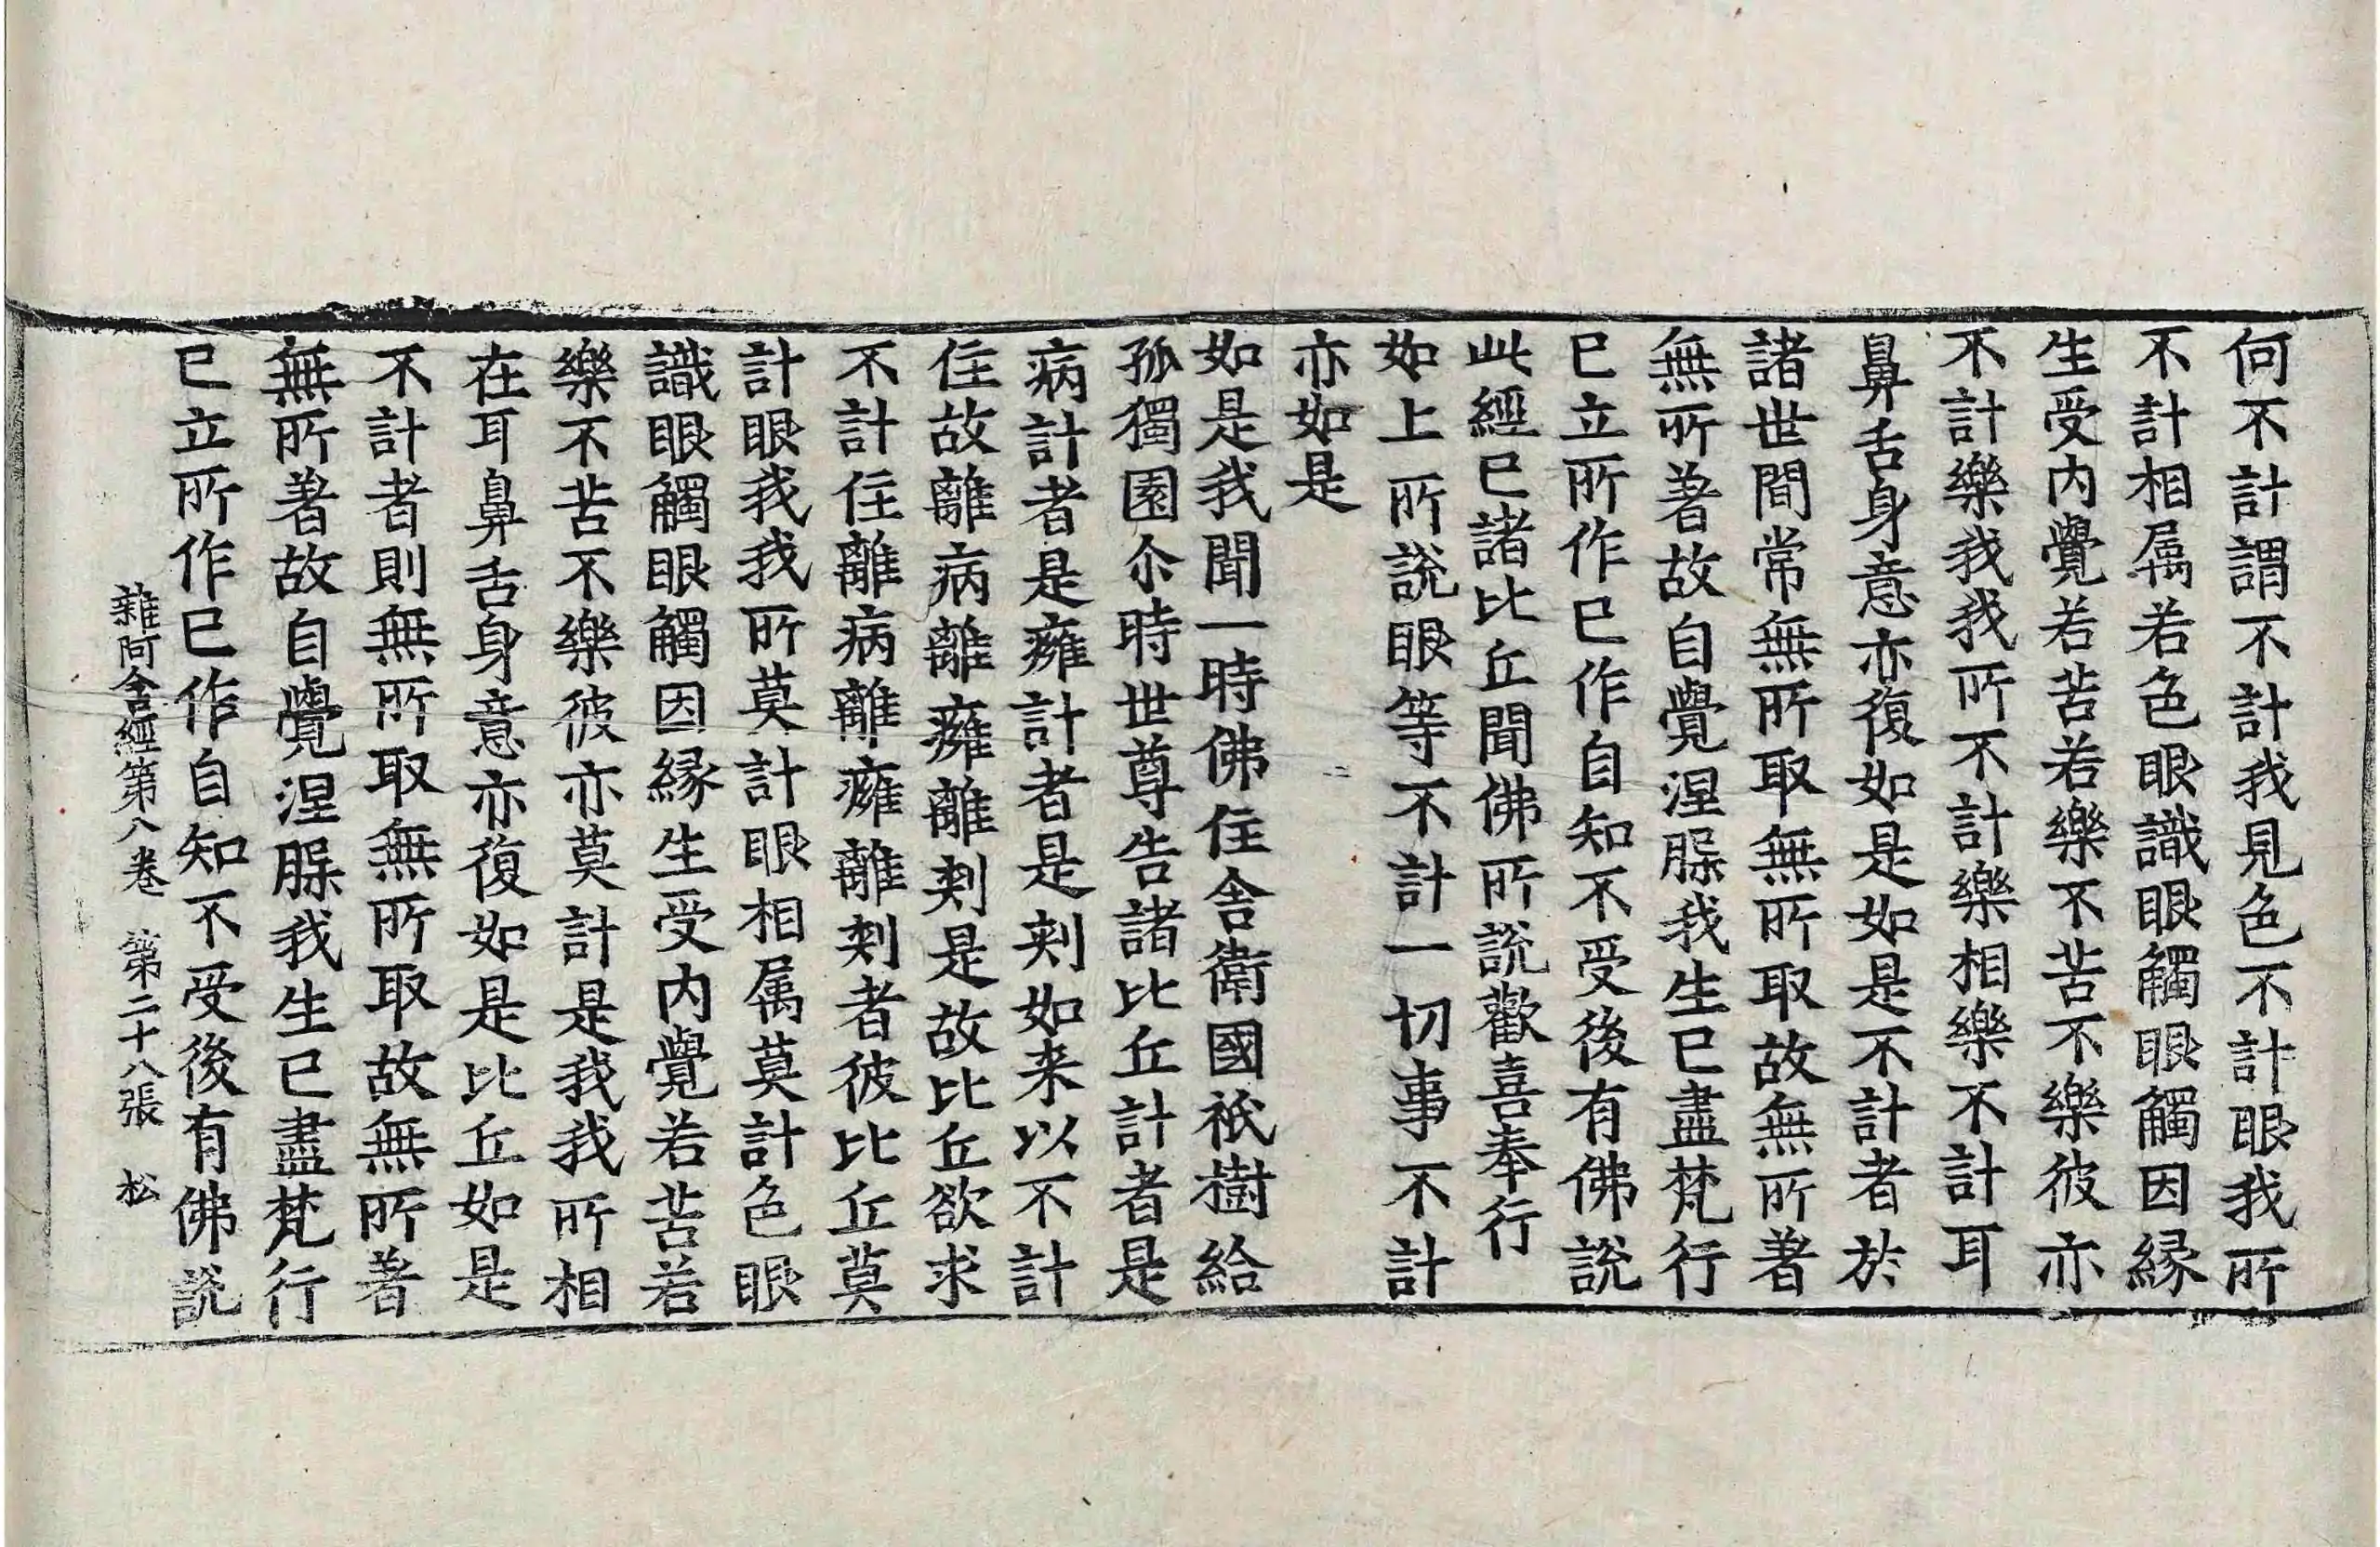 何不計謂不計我見色不計眼我所
不計相属若色眼識眼觸眼觸因縁
生受内覺若苦若樂不苦不樂彼亦
不計樂我我所不計樂相樂不計耳
鼻舌身意亦復如是如是不計者於
諸世間常無所取無所取故無所著
無所著故自覺涅脲我生已盡梵行
已立所作已作自知不受後有佛說
此經已諸比丘聞佛所說歡喜奉行
如上所說眼等不計一切事不計
亦如是
如是我聞一時佛住舍衛國祇樹給
孤獨園尒時世尊告諸比丘計者是
病計者是癰計者是刾如来以不計
住故離病離癰離刾是故比丘欲求
不計住離病離癰離刾者彼比丘莫
計眼我我所莫計眼相属莫計色眼
識眼觸眼觸因縁生受内覺若苦若
樂不苦不樂彼亦莫計是我我所相
在耳鼻舌身意亦復如是比丘如是
不計者則無所取無所取故無所著
無所著故自覺涅脲我生已盡梵行
已立所作已作自知不受後有佛說
雜阿含經第八卷 第二十八張 松